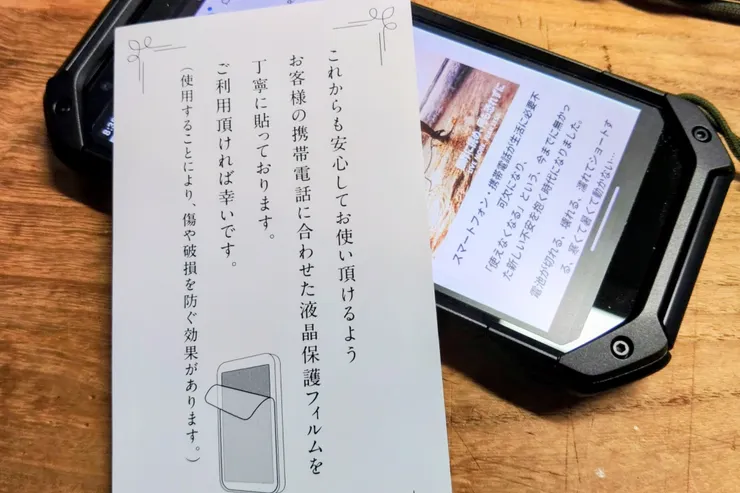 これからも安心してお使い頂けるよう
お客様の携帯電話に合わせた液晶保護フィルムを
丁寧に貼っております。
ご利用頂ければ幸いです。
（使用することにより、傷や破損を防ぐ効果があります。）
スマートフォン・携帯電話が生活に必要不
可欠になり、
「使えなくなる」という、今までに無かっ
た新しい不安を抱く時代になりました。
電池が切れる、壊れる、濡れてショートす
る、寒くて暑くて動かない…